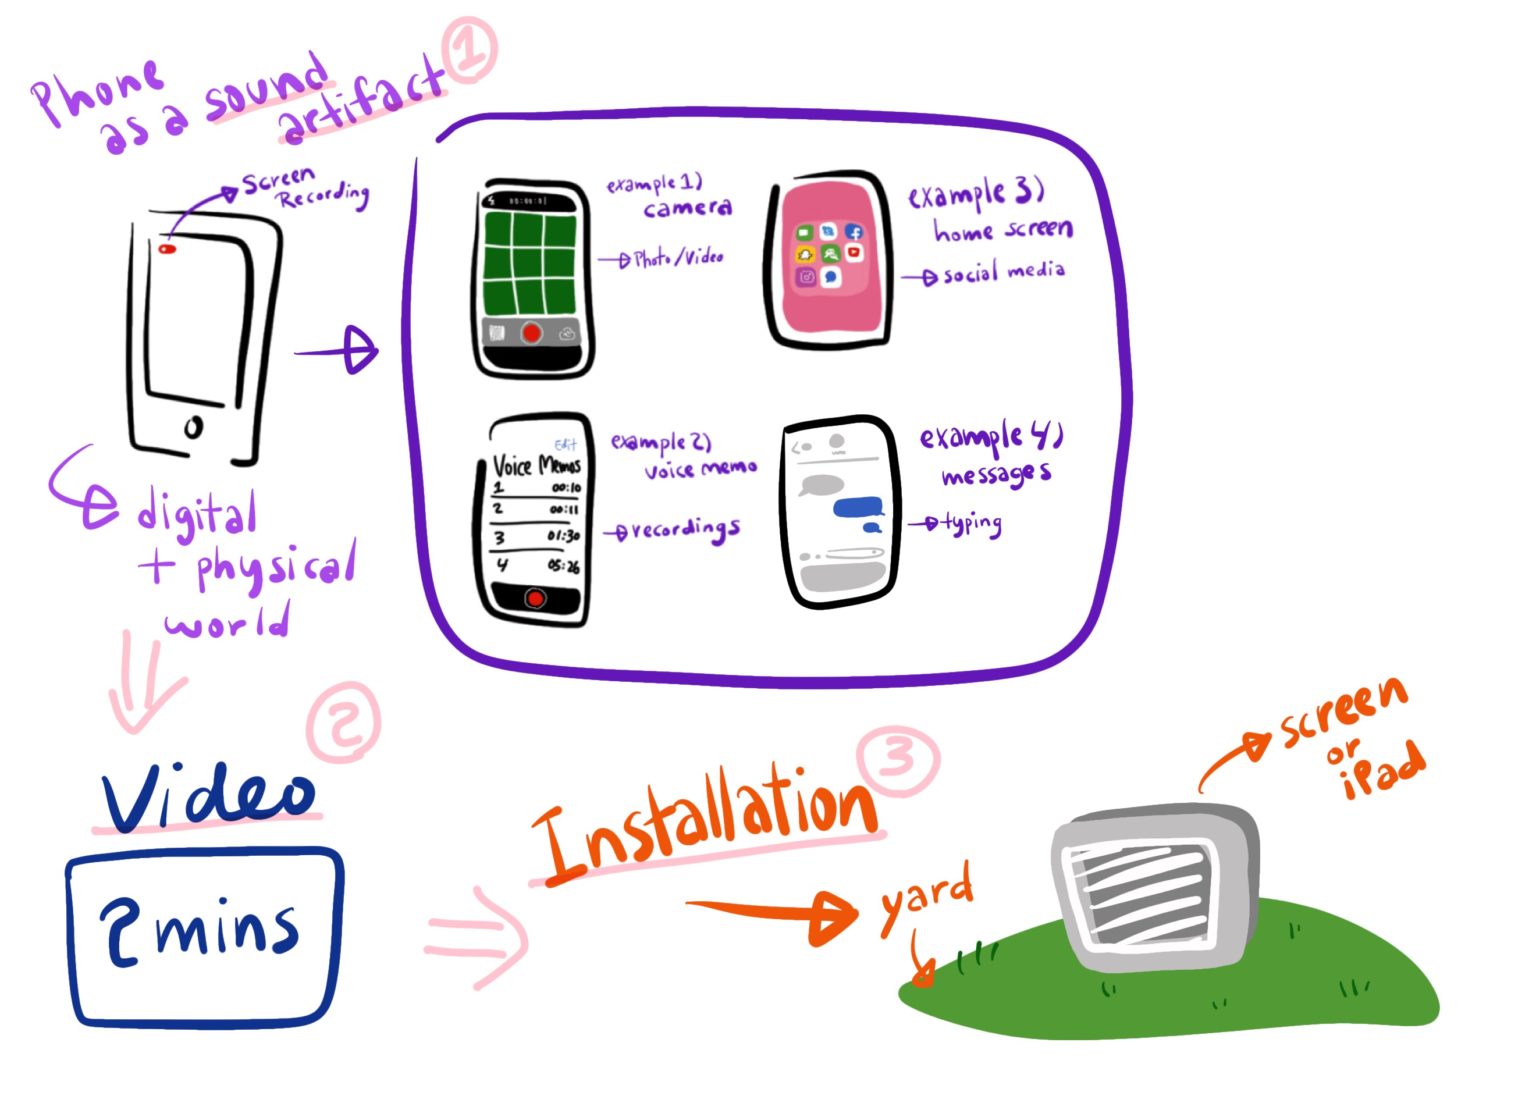 Phone
as a sound
artifact
1
Screen
Recording
digital
+ physical
world
00:00:01
example 1)
camera
Photo/Video
Edit
Voice Memos
1 00:10
2 00:11
3 01:30
4 05:26
example 2)
voice memo
recordings
example 3)
home screen
social media
example 4)
messages
typing
2
Video
2 mins
3
Installation
yard
screen
or
iPad